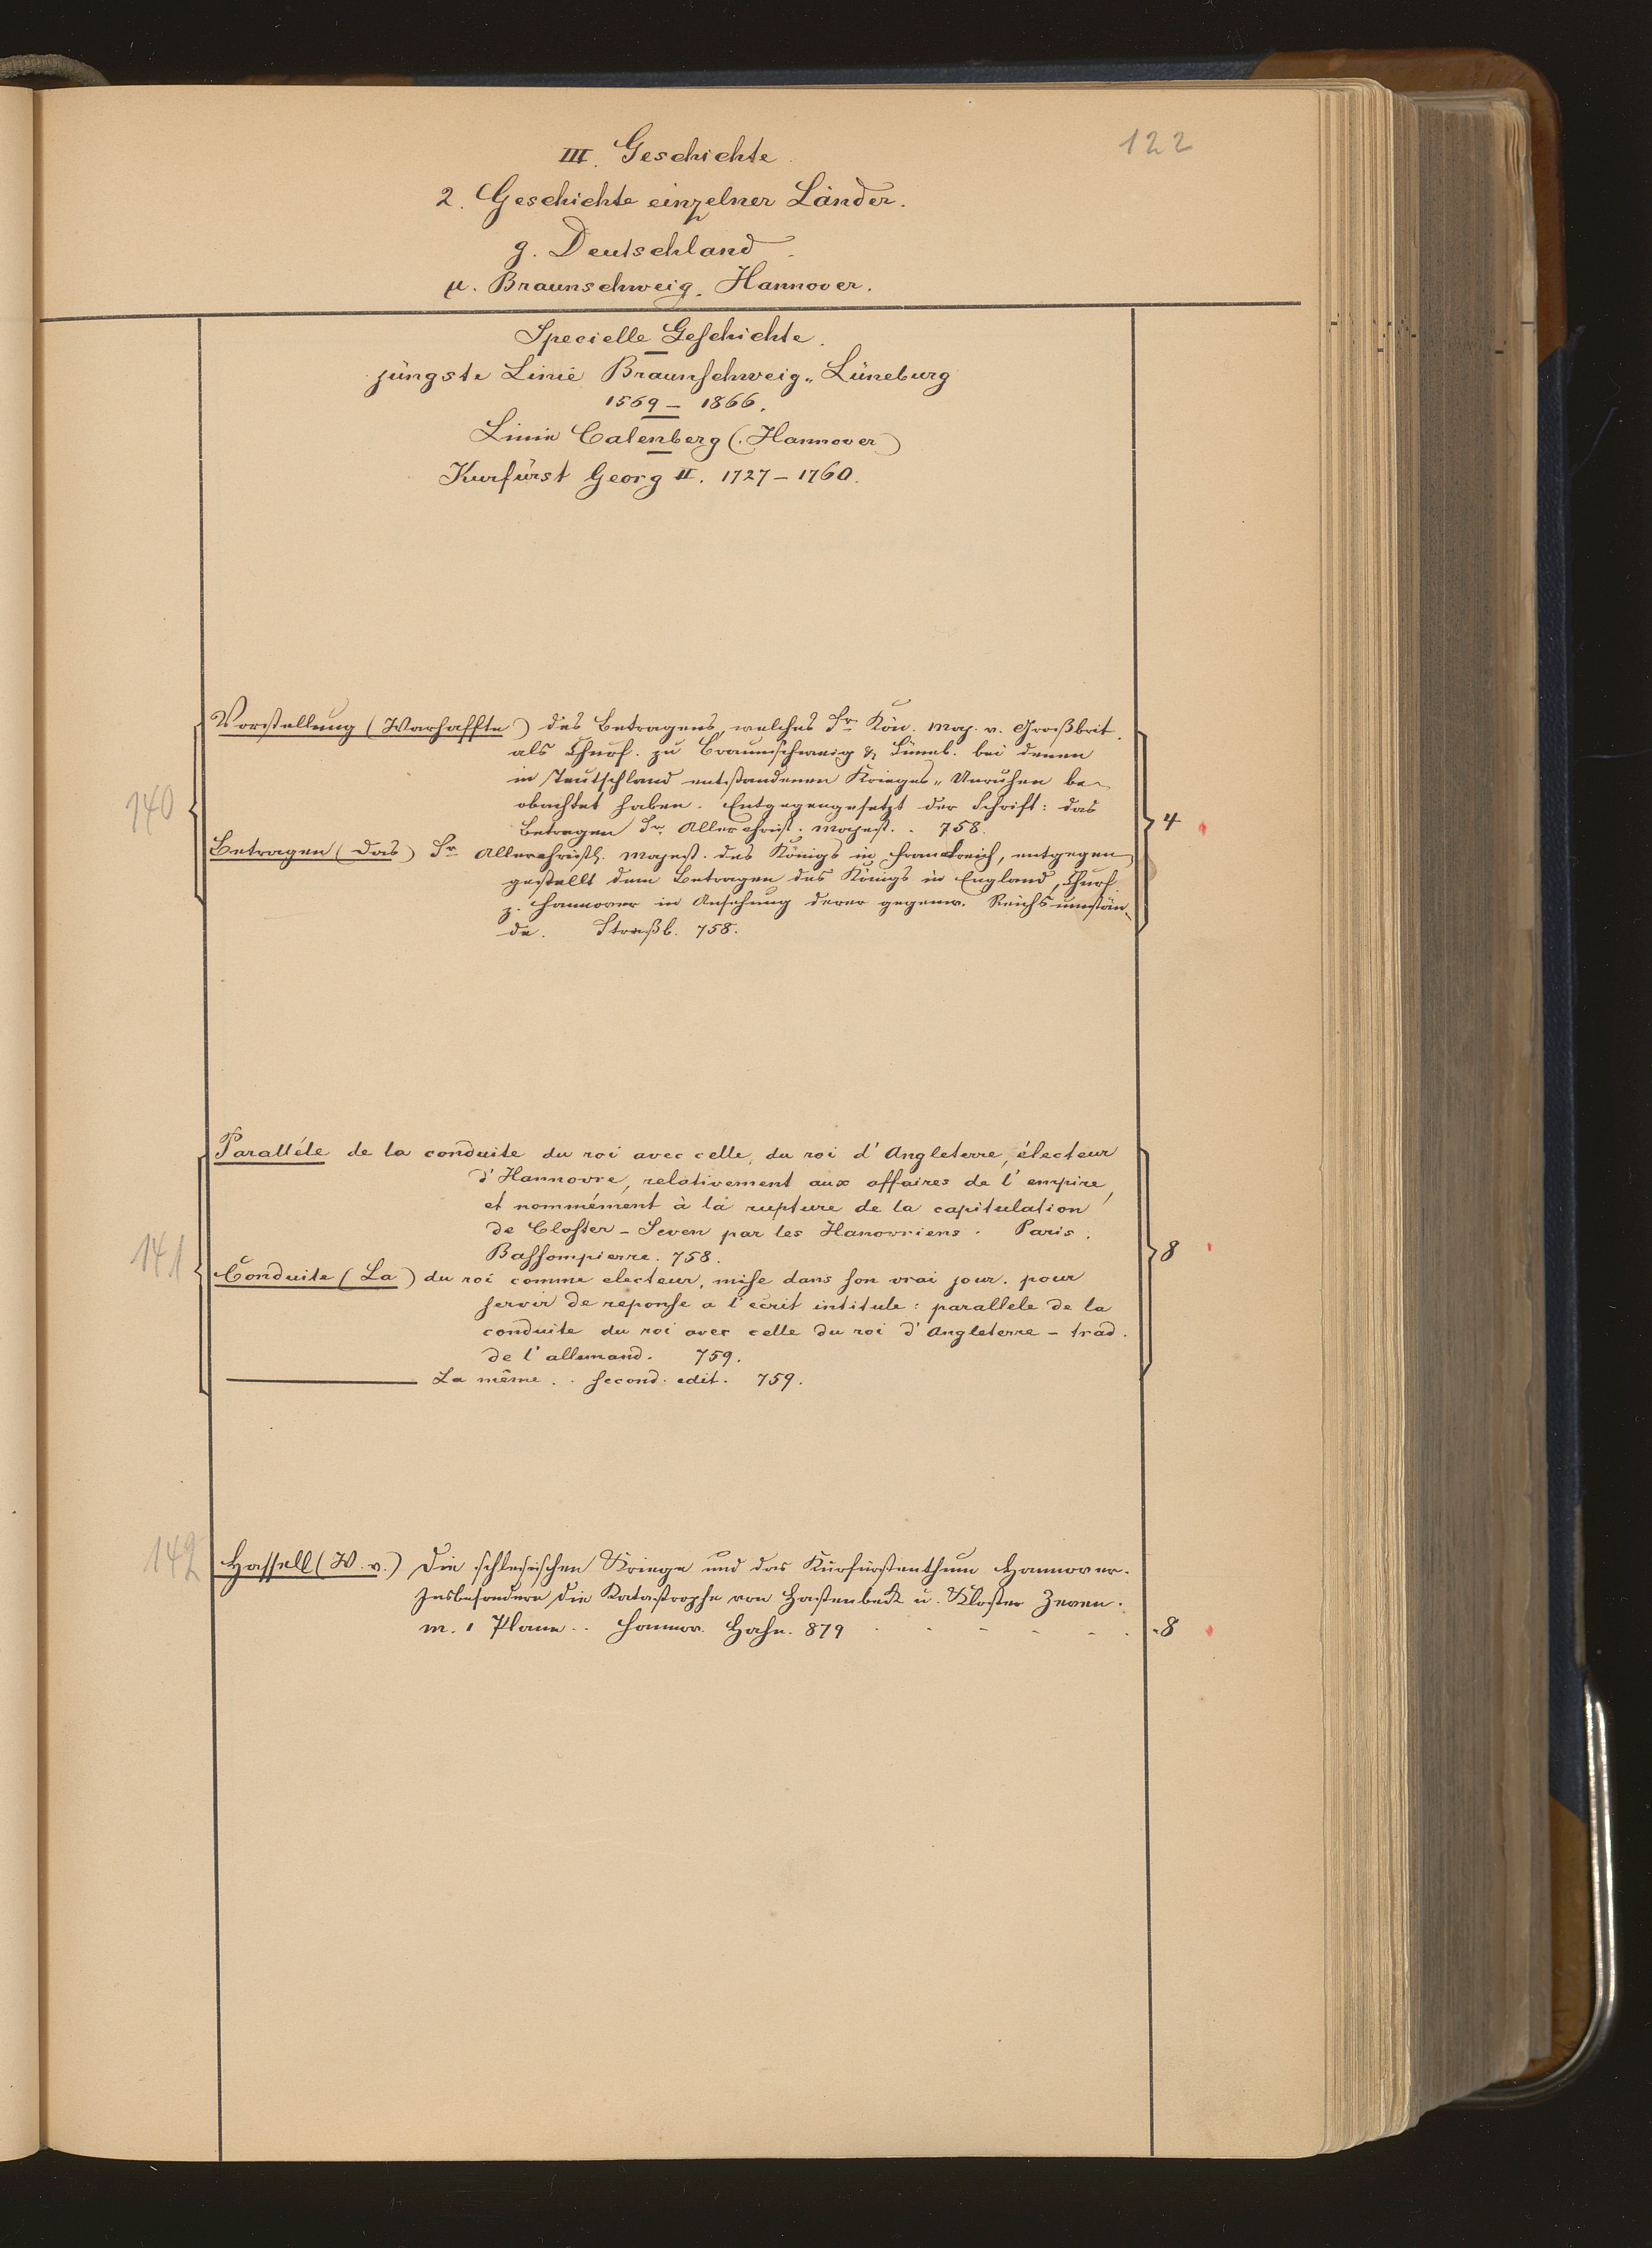 122
III. Geschichte.
2. Geschichte einzelner Länder.
g. Deutschland.
μ. Braunschweig. Hannover.
Specielle Geschichte.
jüngste Linie Braunschweig-Lüneburg
1569 – 1866.
Linie Calenberg (Hannover)
Kurfürst Georg II. 1727 – 1760.
140
Vorstellung (Warhaffte) des Betragens, welches Sr. Kön. Maj. v. Großbrit.
als Churf. zu Braunschweig & Lüneb. bei denen
in Teutschland entstandenen Krieges-Unruhen be-
obachtet haben. Entgegengesetzt der Schrift: das
Betragen Sr. Allerchrist. Majest. . 758.
4
Betragen (Das) Sr. Allerchristl. Majest. des Königs in Franckreich, entgegen
gestellt dem Betragen des Königs in England, Churf.
z. Hannover in Ansehung derer gegenw. Reichsumstän-
de. Straßb. 758.
141
Paralléle de la conduite du roi avec celle, du roi d'Angleterre, électeur
d'Hannovre, relativement aux affaires de l'empire,
et nommément à la rupture de la capitulation
de Closter-Seven par les Hanovriens. Paris.
Bassompierre. 758.
8
Conduite (La) du roi comme electeur, mise dans son vrai jour. pour
servir de reponse a l'ecrit intitule: parallele de la
conduite du roi avec celle du roi d'Angleterre – trad.
de l'allemand. 759.
——— La même. . second. edit. 759.
142
Hassell (W. v.) Die schlesischen Kriege und das Kurfürstenthum Hannover.
Insbesondere die Katastrophe von Hastenbeck u. Kloster Zeven.
m. 1 Plane.. Hannov. Hahn. 879 . . - - - . . 8